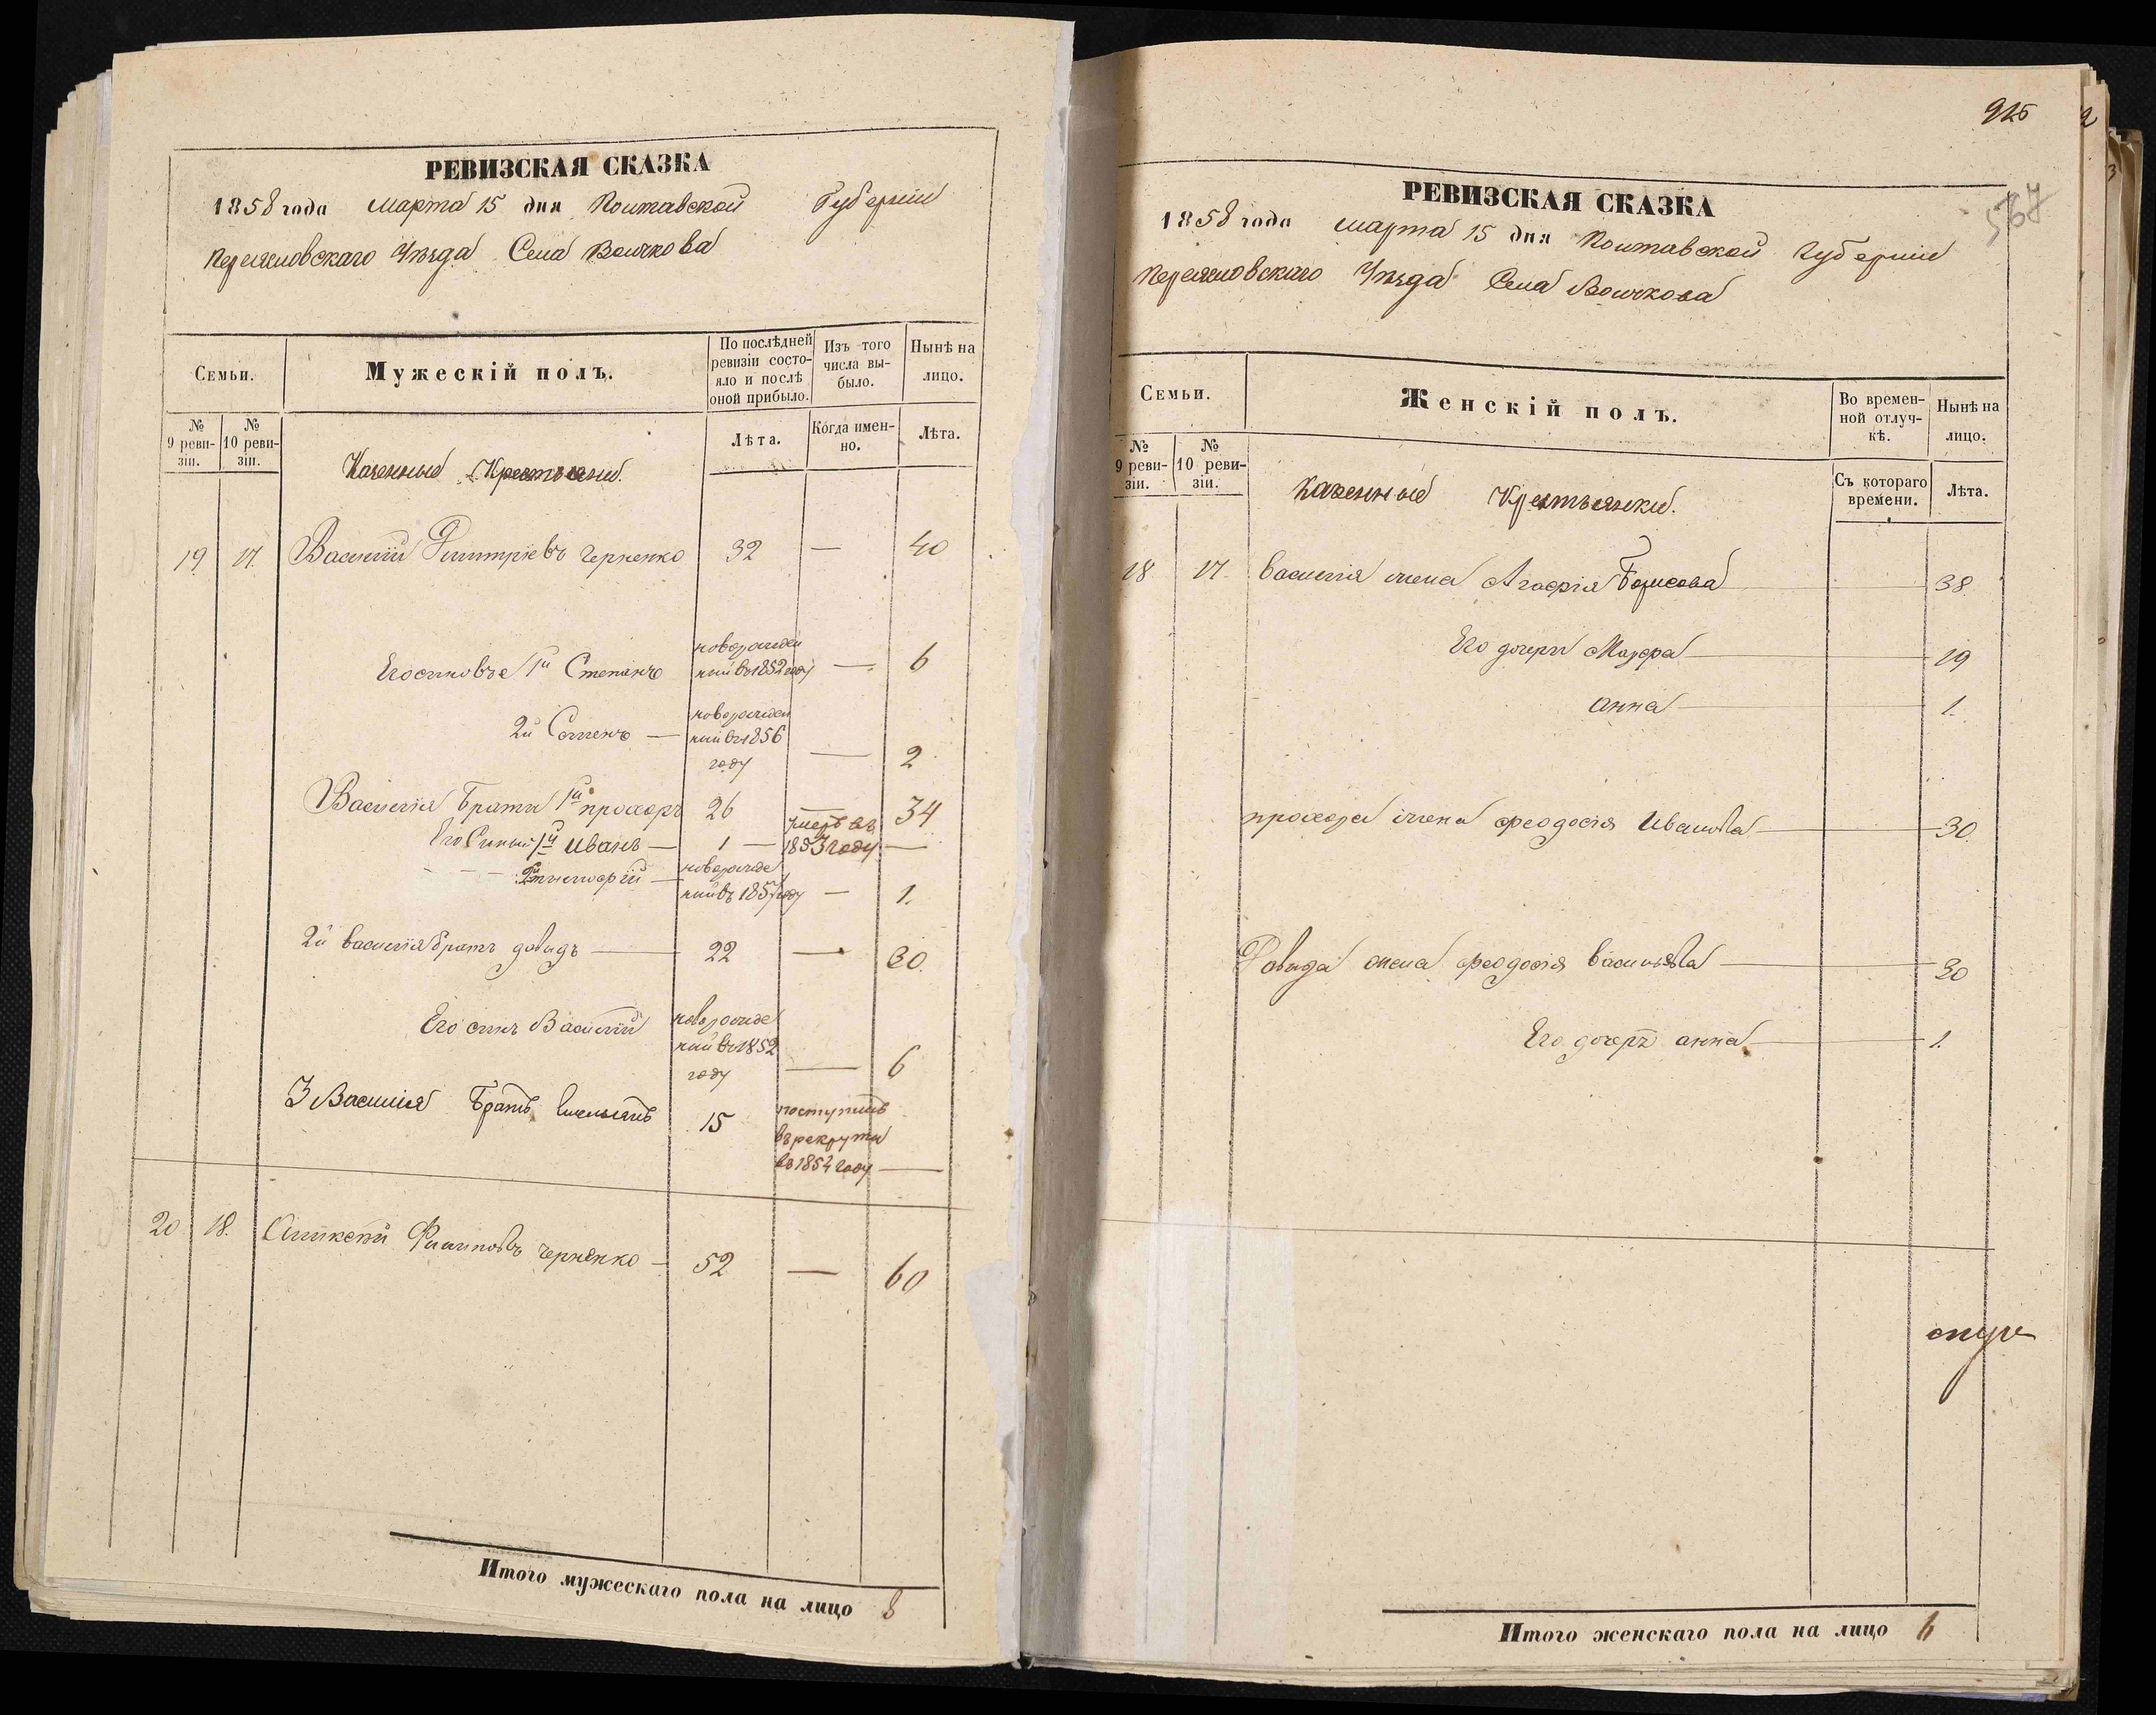 РЕВИЗСКАЯ СКАЗКА
1858 года марта 15 дня Полтавской Губерніи
Переясловскаго Уѣзда Села Волчкова
Семьи.
Мужескій полъ.
По послѣдней ревизіи состо-
яло и послѣ оной прибыло.
Изъ того числа вы-
было.
Нынѣ на лицо.
№ 9 реви-
зіи.
№ 10 реви-
зіи.
Казенные Крестьяне.
Лѣта.
Когда имен-
но.
Лѣта.
19 17. Василий Дмитріевъ Черненко 32 — 40
Его сыновье 1й Степанъ новорожден
ний въ 1852 году — 6
2й Семенъ — новорожден
ний въ 1856
году — 2
Василия Браты 1й прохоръ 26 — 34
Его Сыны 1й Иванъ — 1 — умеръ въ
1853 году —
новорожде
ний въ 1857 году — 1.
2й василия братъ давидъ — 22 — 30.
Его сынъ Василий новорожде
ний въ 1852
году — 6
3 Василия Братъ Емельянъ 15 поступилъ
въ рекруты
въ 1854 году —
20 18. Филиповъ Черненко — 52 — 60
Итого мужескаго пола на лицо 8
925
567
РЕВИЗСКАЯ СКАЗКА
1858 года марта 15 дня Полтавской Губерніи
Переясловскаго Уѣзда Села Волчкова
Семьи.
Женскій полъ.
Во времен-
ной отлуч-
кѣ.
Нынѣ на лицо.
№ 9 реви-
зіи.
№ 10 реви-
зіи.
Казенные Крестьянки.
Съ котораго времени.
Лѣта.
18 17. василия жена Агафія Борисова — 38.
Его дочери Мавра — 19
анна — 1.
прохора жена феодосія Иванова — 30.
Давида жена феодосія васильева — 30
Его дочеръ анна — 1.
Итого женскаго пола на лицо 6